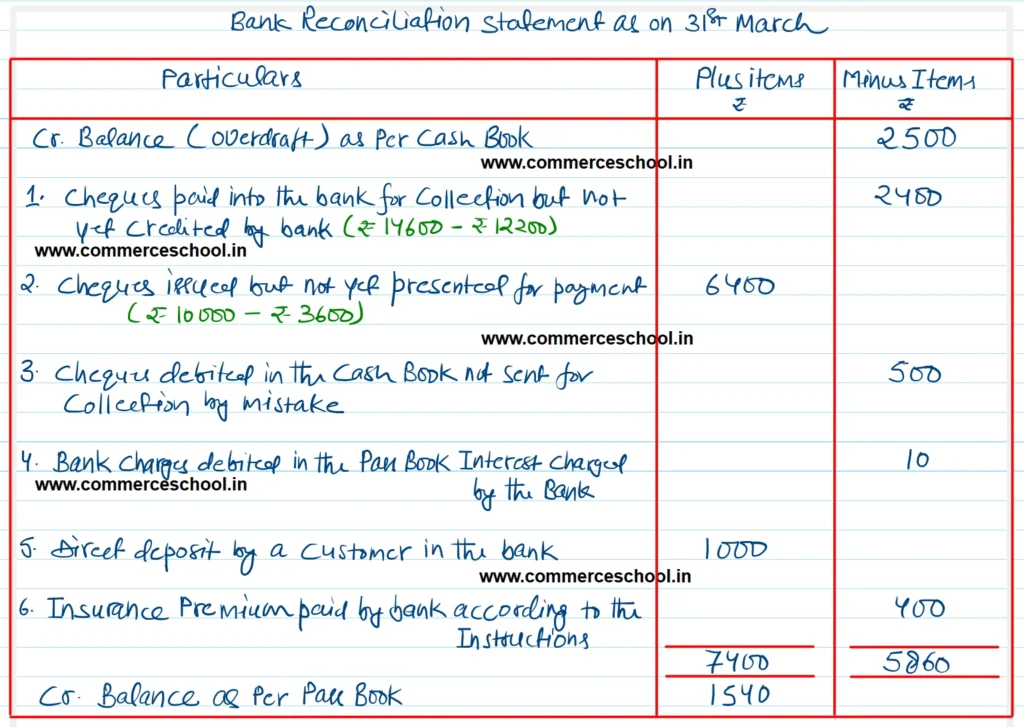 Bank Reconciliation Statement as on 31st March
Particulars Plus items Minus Items
₹ ₹
Cr. Balance (overdraft) as Per Cash Book 2500
www.commerceschool.in
1. Cheques paid into the bank for Collection but not 2400
yet credited by bank (₹ 14600 - ₹ 12200)
www.commerceschool.in
2. Cheques issued but not yet presented for payment 6400
(₹ 10000 - ₹ 3600)
www.commerceschool.in
3. Cheque debited in the Cash Book not sent for 500
Collection by mistake
4. Bank charges debited in the Pass Book Interest charged 10
www.commerceschool.in by the Bank
5. Direct deposit by a customer in the bank 1000
www.commerceschool.in
6. Insurance Premium paid by bank according to the 400
Instructions
7400 5860
Cr. Balance as Per Pass Book 1540